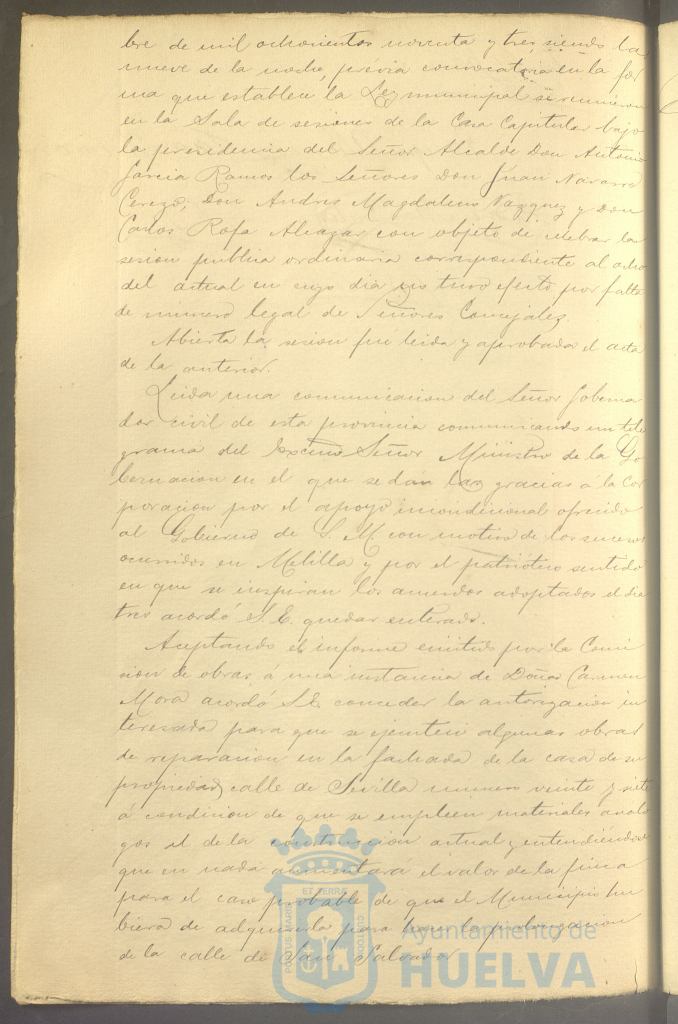 bre de mil ochocientos noventa y tres, siendo la
nueve de la noche, prévia convocatoria en la for
ma que establece la Ley municipal se reunieron
en la Sala de sesiones de la Casa Capitular bajo
la presidencia del Señor Alcalde Don Antonio
Garcia Ramos los Señores Don Juan Navarro
Cerezo, Don Andres Magdaleno Vazquez y Don
Carlos Rofa Alcazar con objeto de celebrar la
sesion publica ordinaria correspondiente al ocho
del actual en cuyo dia no tuvo efecto por falta
de número legal de Señores Concejales.
Abierta la sesion fué leida y aprobada el acta
de la anterior.
Leida una comunicacion del Señor Goberna
dor civil de esta provincia comunicando un tele
grama del Excmo Señor Ministro de la Go
bernacion en el que se dan las gracias á la Cor
poracion por el apoyo incondicional ofrecido
al Gobierno de S. M. con motivo de los sucesos
ocurridos en Melilla y por el patriótico sentido
en que se inspiran los acuerdos adoptados el dia
tres acordó S. E. quedar enterado.
Aceptando el informe emitido por la Comi
sion de obras, á una instancia de Doña Carmen
Mora acordó S. E. conceder la autorizacion in
teresada para que se ejecuten algunas obras
de reparacion en la fachada de la casa de su
propiedad calle de Sevilla número veinte y siete
á condicion de que se empleen materiales analo
gos al de la construccion actual y entendiéndose
que en nada aumentará el valor de la finca
para el caso probable de que el Municipio hu
biera de adquirirla para hacer la prolongacion
de la calle de San Salvador
PORTUS MARIS ET TERRÆ CUSTODIA
Ayuntamiento de
HUELVA